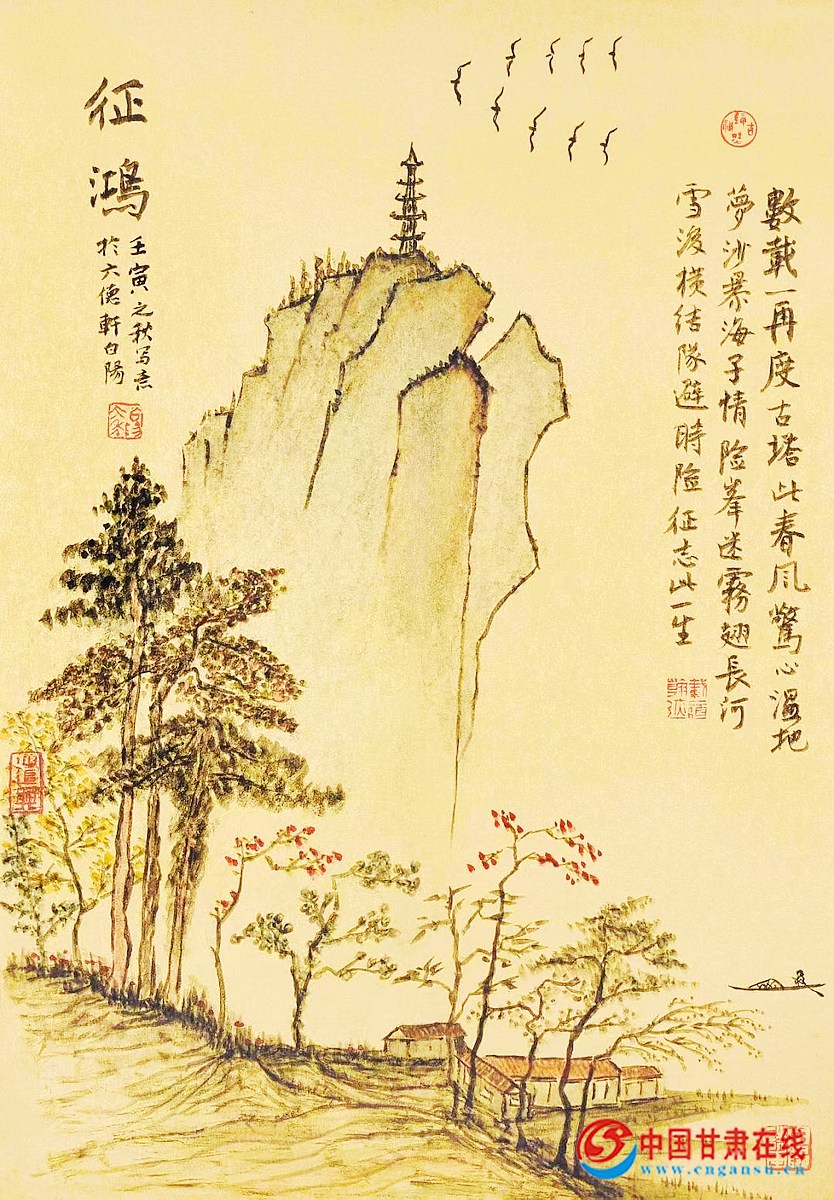 數載一再度古塔此春风驚心溫把
夢沙暴海子情险峯迷霧翅長河
雪後横结隊避時险征志此一生
征鴻
壬寅之秋写意
於六德軒白陽
中国甘肃在线
www.cngansu.cn